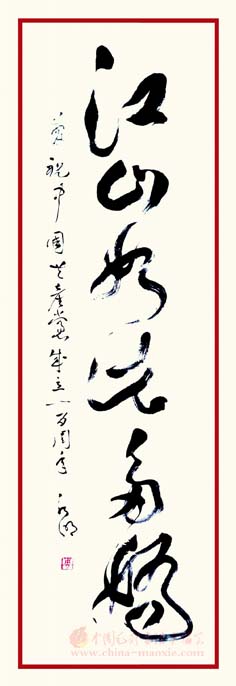 江山如此多嬌
黄祝中国共產黨成立一百周年
www.china-manxie.com